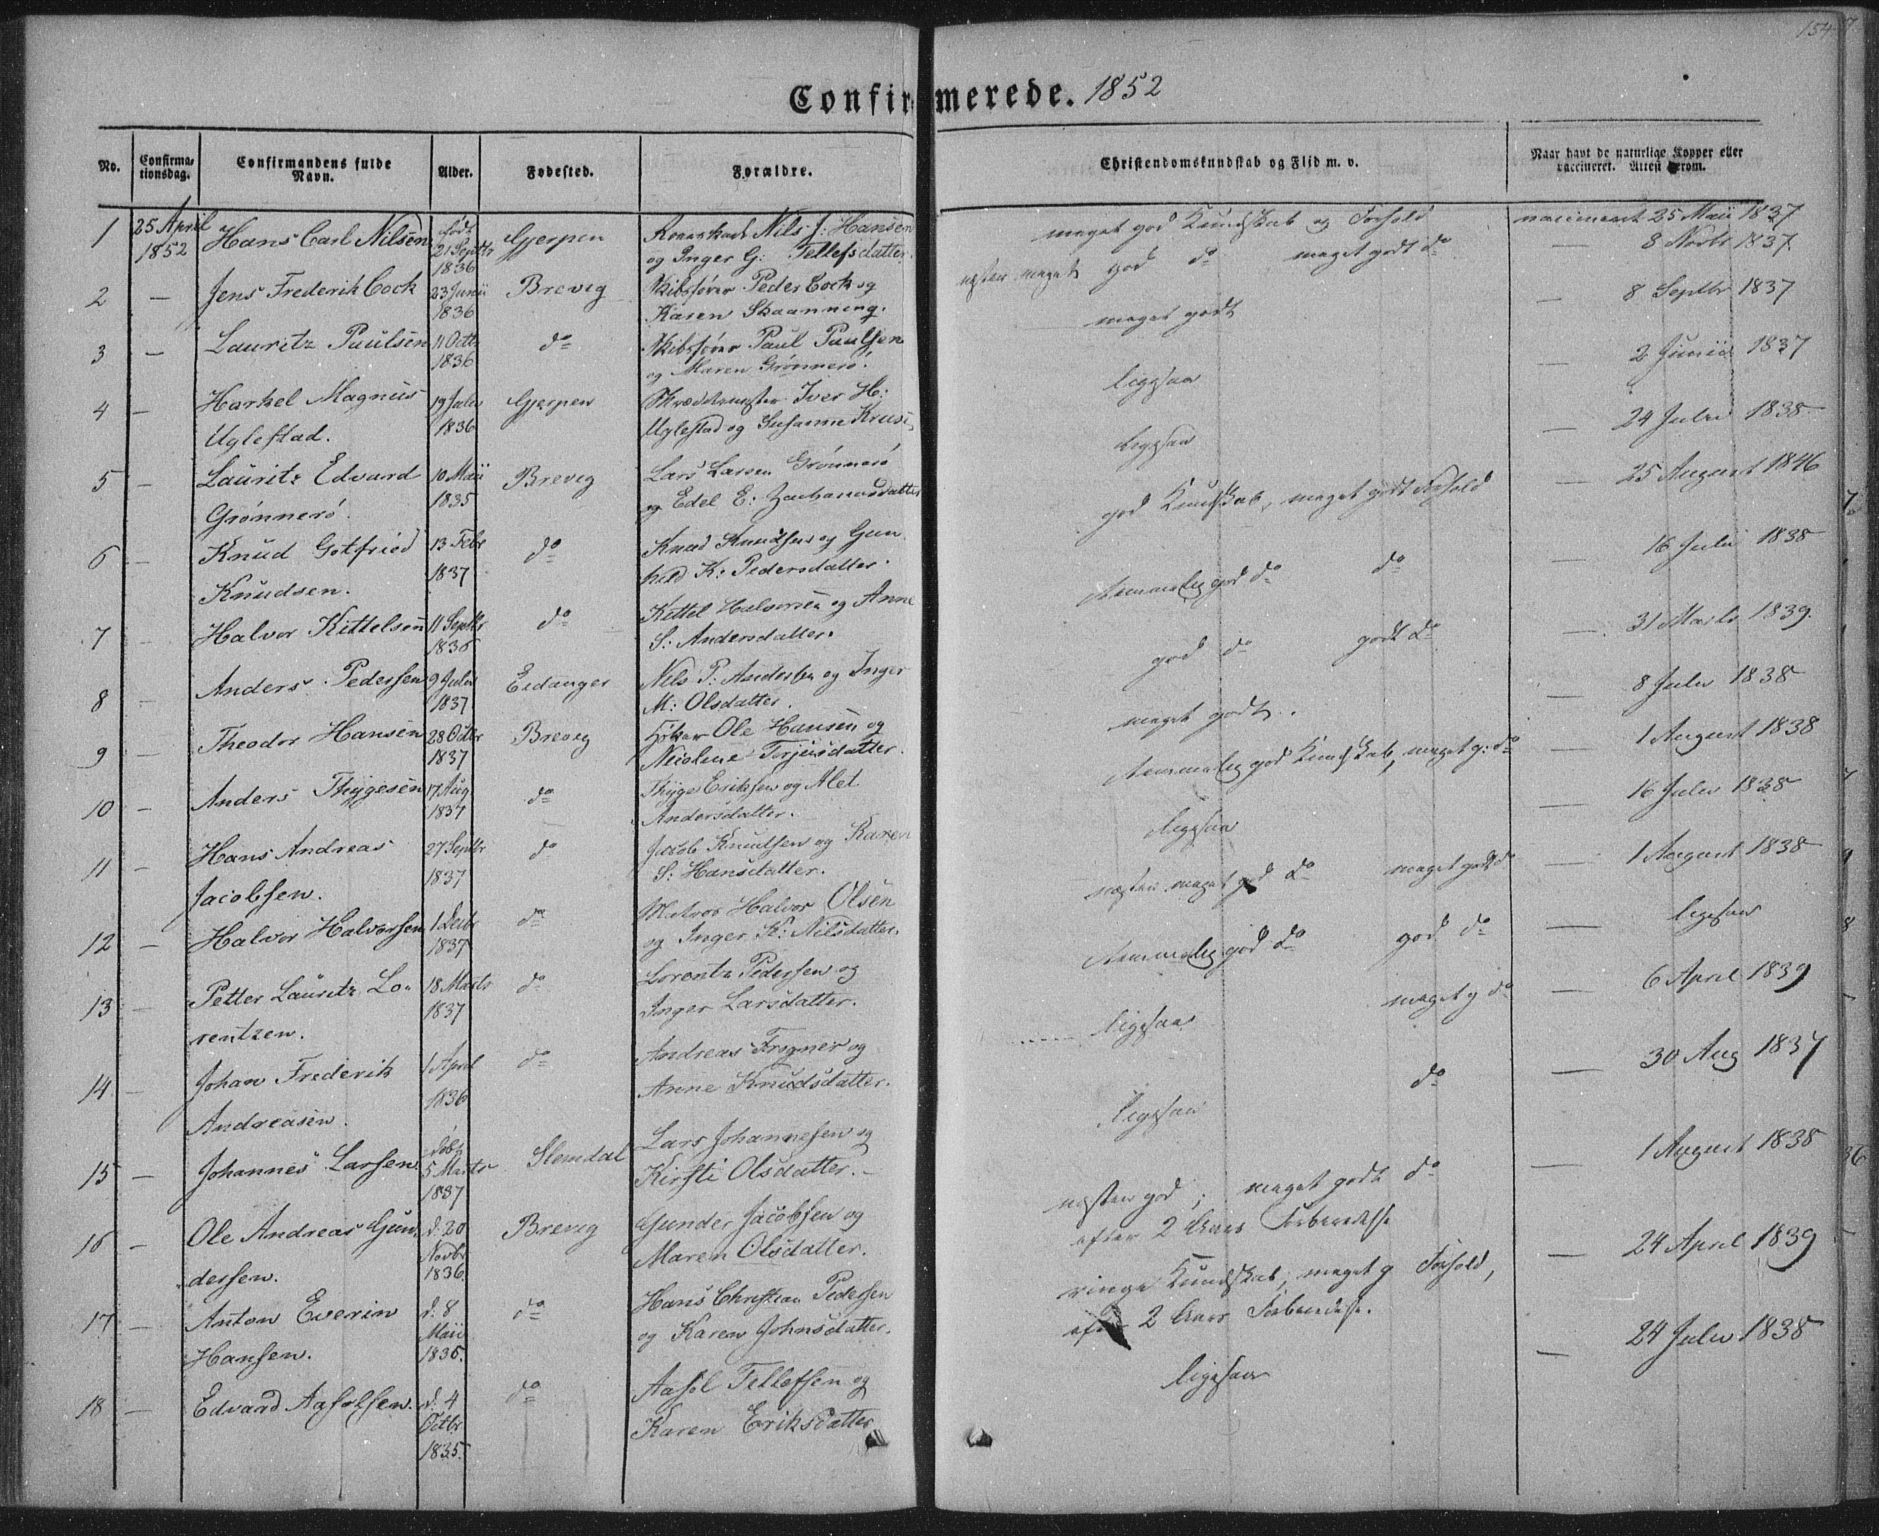 154
Confirmerede. 1852
No.
Confirma-
tionsdag.
Confirmandens fulde
Navn.
Alder.
Fødested.
Forældre.
Christendomskundskab og Flid m. v.
Naar havt de naturlige Kopper eller
vaccineret. Attest herom.
1 25 April 1852 Hans Carl Nilsen født 21 Septbr 1836 Gjerpen Nils J: Hansen
og Inger G: Tellefsdatter. meget god Kundskab og Forhold vaccineret 25 Maii 1837
2 — Jens Frederik Cock 23 Junii 1836 Brevig Skibsfører Peder Cock og
Karen Skaanning. næsten meget god do meget godt do — 8 Novbr 1837
3 — Lauritz Paulsen 11 Octb 1836 do Skibsfører Paul Paulsen
og Maren Grønnerø. meget godt — 8 Septbr 1837
4 — Harkel Magnus
Uglestad. 19 Julii 1836 Gjerpen Iver H:
Uglestad og Susanne Kruse. ligesaa — 2 Junii 1837
5 — Lauritz Edvard
Grønnerø. 10 Maii 1835 Brevig Lars Larsen Grønnerø
og Edel E: Zachariasdatter ligesaa — 24 Julii 1838
6 — Knud Gotfried
Knudsen. 13 Febr 1837 do Knud Knudsen og Gun
hild K: Pedersdatter. god Kundskab, meget godt Forhold — 25 August 1846
7 — Halvor Kittelsen 11 Septbr 1836 do Kittel Halvorsen og Anne
S: Andersdatter. temmelig god do do — 16 Julii 1838
8 — Anders Pedersen 9 Julii 1837 Eidanger Nels P: Andersen og Inger
M: Olsdatter. god do godt do — 31 Marts 1839.
9 — Theodor Hansen 28 Octbr 1837 Brevig Ole Hansen og
Nicoline Torjusdatter. meget godt. — 8 Julii 1838
10 — Anders Thygesen 17 Aug 1837 do Thyge Eriksen og Alet
Andersdatter. temmelig god Kundskab, meget g: do — 1 August 1838
11 — Hans Andreas
Jacobsen. 27 Septbr 1837 do Jacob Knudsen og Karen
S: Hansdatter. ligesaa — 16 Julii 1838
12 — Halvor Halvorsen 1 Decbr 1837 do Matros Halvor Olsen
og Inger K: Nilsdatter. næsten meget god do meget godt do — 1 August 1838
13 — Petter Lauritz Lo-
rentzen. 18 Marts 1837 do Lorentz Pedersen og
Inger Larsdatter. temmelig god do god do — ligesaa
14 — Johan Frederik
Andreasen. 1 April 1836 do Andreas Frogner og
Anne Knudsdatter. ligesaa meget g do — 6 April 1839
15 — Johannes Larsen 5 Marts 1837 Slemdal Lars Johannesen og
Kirsti Olsdatter. — ligesaa do 30 Aug 1837
16 — Ole Andreas Gun-
dersen. d. 20 Novbr 1836. Brevig Gunder Jacobsen og
Maren Olsdatter. næsten god; meget godt do
efter 2 Aars Forberedelse — 1 August 1838
17 — Anton Everin
Hansen. d. 8 Maii 1836. do Hans Christian Pedersen
og Karen Johnsdatter. ringe Kundskab; meget g Forhold,
efter 2 Aars Forberedelse. — 24 April 1839
18 — Edvard Aasolsen. d. 4 Octbr 1835. do Aasol Tellefsen og
Karen Eriksdatter ligesaa — 24 Julii 1838